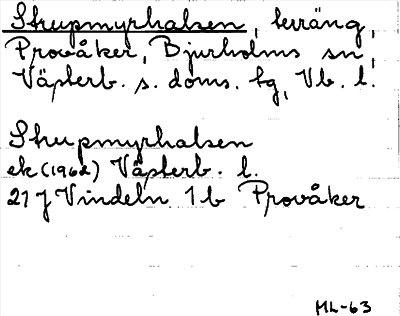 Strupmyrhalsen, terräng,
Provåker, Bjurholms sn,
Västerb. s. doms. hg, Vb. l.
Strupmyrhalsen
ek (1962) Västerb. l.
21 J Vindeln 1 b Provåker
ML-63